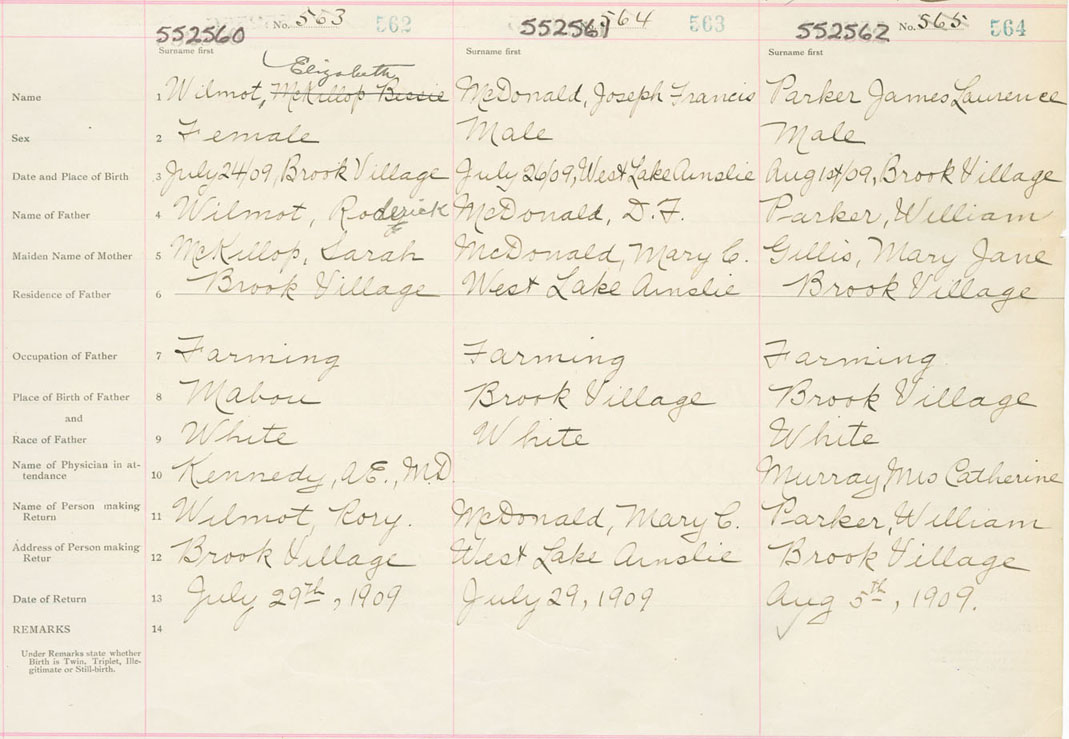 No. 563 562 No. 564 563 No. 565 564
552560 552561 552562
Surname first Surname first Surname first
Elizabeth
Name 1 Wilmot, McKillop Bessie McDonald, Joseph Francis Parker James Laurence
Sex 2 Female Male Male
Date and Place of Birth 3 July 24/09, Brook Village July 26/09, West Lake Ainslie Aug 1st/09, Brook Village
Name of Father 4 Wilmot, Roderick McDonald, D.F. Parker, William
Maiden Name of Mother 5 McKillop, Sarah McDonald, Mary C. Gillis, Mary Jane
Residence of Father 6 Brook Village West Lake Ainslie Brook Village
Occupation of Father 7 Farming Farming Farming
Place of Birth of Father 8 Mabou Brook Village Brook Village
and
Race of Father 9 White White White
Name of Physician in at-
tendance 10 Kennedy, A.E., M.D. Murray, Mrs Catherine
Name of Person making
Return 11 Wilmot, Rory. McDonald, Mary C. Parker, William
Address of Person making
Retur 12 Brook Village West Lake Ainslie Brook Village
Date of Return 13 July 29th, 1909 July 29, 1909 Aug 5th, 1909.
REMARKS 14
Under Remarks state whether
Birth is Twin, Triplet, Ille-
gitimate or Still-birth.